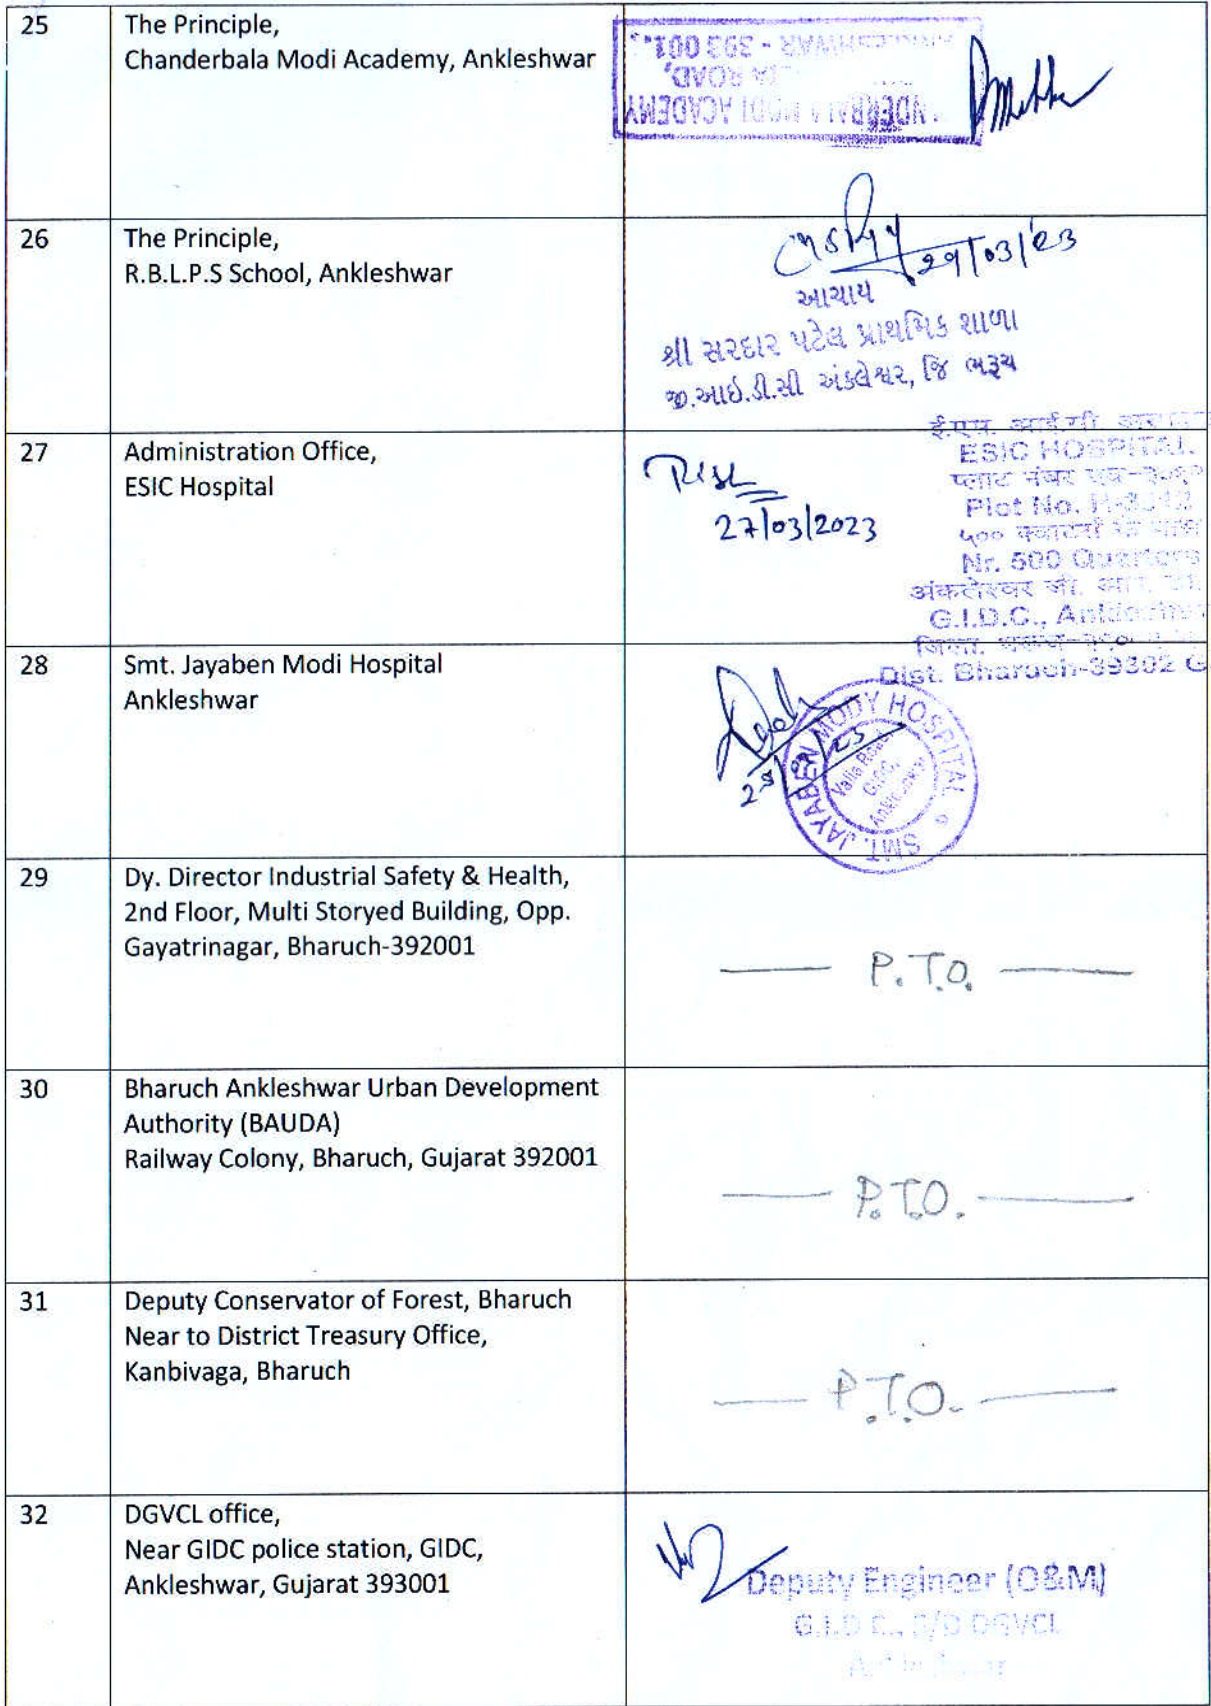 25
The Principle,
Chanderbala Modi Academy, Ankleshwar
MODI ACADEMY
ROAD,
- 393 001.
26
The Principle,
R.B.L.P.S School, Ankleshwar
29/03/23
આચાર્ય
શ્રી સરદાર પટેલ પ્રાથમિક શાળા
જી.આઈ.ડી.સી અંકલેશ્વર, જિ ભરૂચ
27
Administration Office,
ESIC Hospital
27/03/2023
ESIC HOSPITAL
प्लाट नंबर
Plot No.
५००
Nr. 500 Quarters
अंकलेश्वर जी.
G.I.D.C.,
Dist. Bharuch-39302 G
28
Smt. Jayaben Modi Hospital
Ankleshwar
SMT. JAYABEN MODY HOSPITAL
Valia Road
GIDC,
Ankleshwar
29
Dy. Director Industrial Safety & Health,
2nd Floor, Multi Storyed Building, Opp.
Gayatrinagar, Bharuch-392001
P.T.O.
30
Bharuch Ankleshwar Urban Development
Authority (BAUDA)
Railway Colony, Bharuch, Gujarat 392001
P.T.O.
31
Deputy Conservator of Forest, Bharuch
Near to District Treasury Office,
Kanbivaga, Bharuch
P.T.O.
32
DGVCL office,
Near GIDC police station, GIDC,
Ankleshwar, Gujarat 393001
Deputy Engineer (O&M)
DGVCL